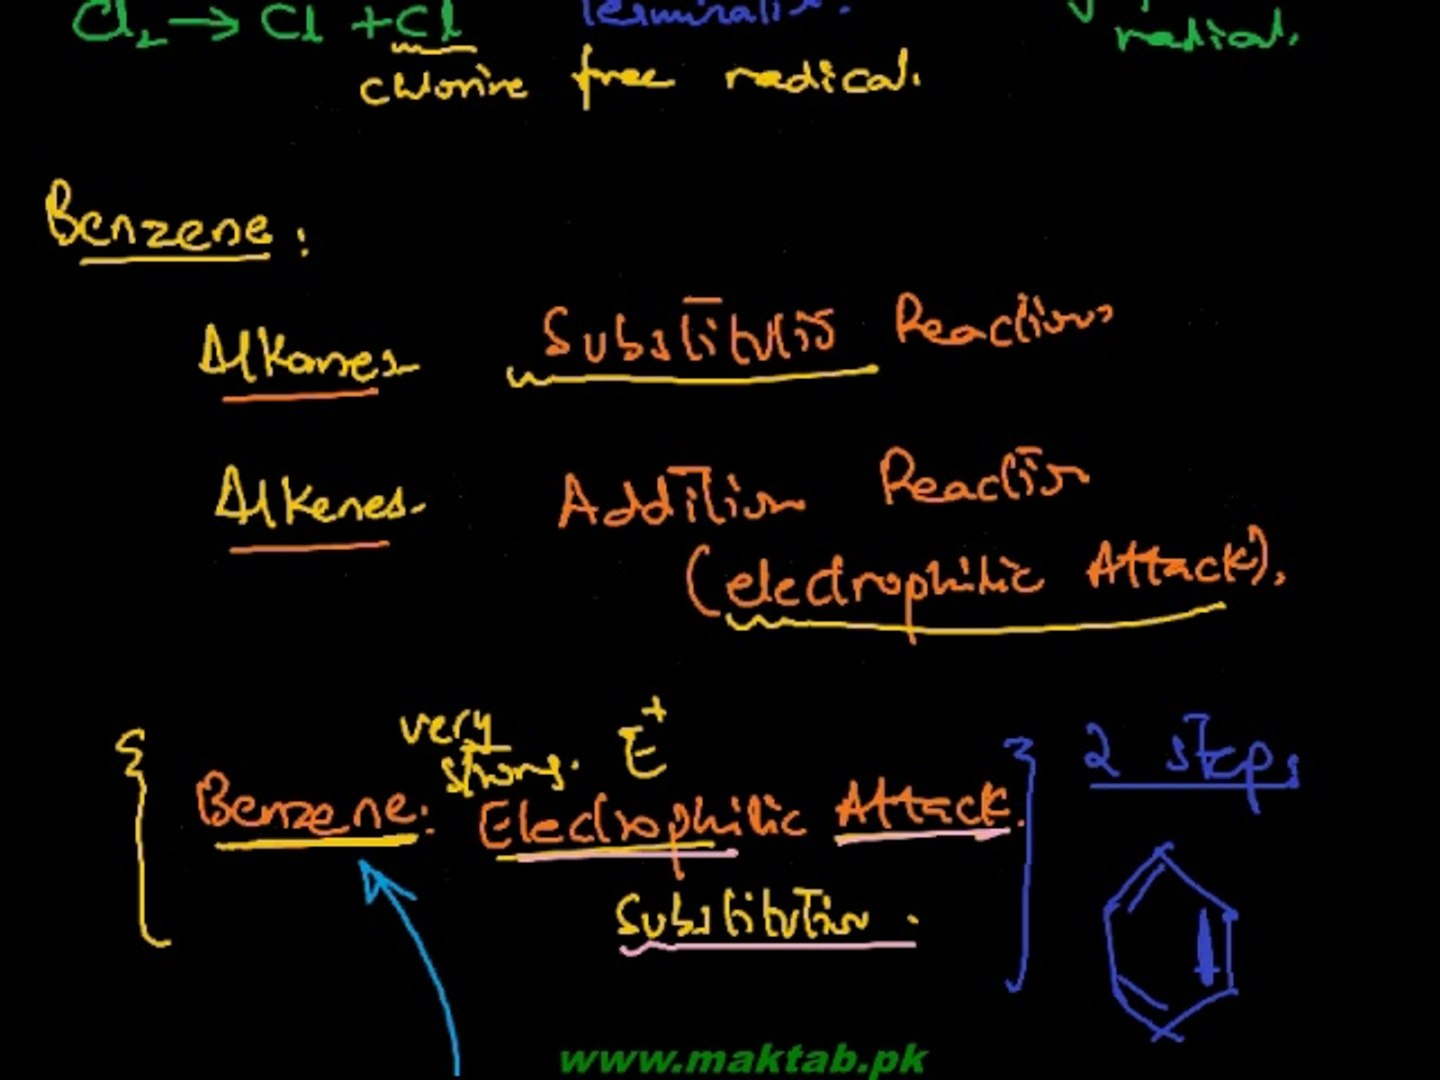 Cl₂ → Cl + Cl Termination. radical.
chlorine free radical.
Benzene:
Alkanes Substitution Reactions
Alkenes Addition Reaction
(electrophilic Attack).
very strong. E⁺ 2 steps
Benzene: Electrophilic Attack.
Substitution.
www.maktab.pk